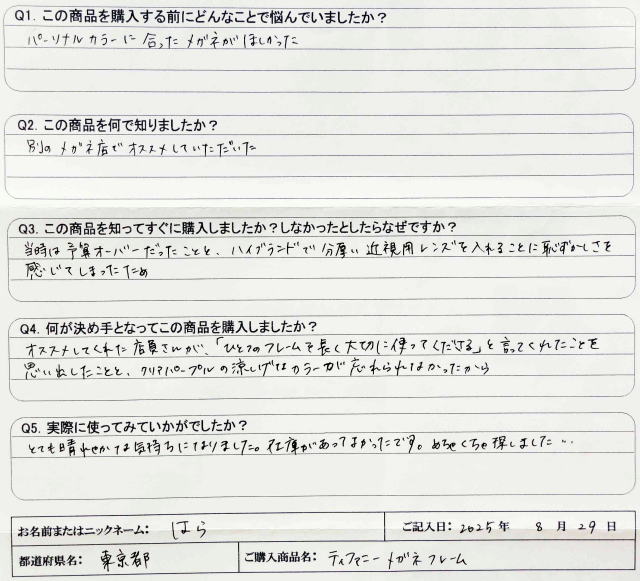 Q1. この商品を購入する前にどんなことで悩んでいましたか？
パーソナルカラーに合ったメガネがほしかった
Q2. この商品を何で知りましたか？
別のメガネ店でオススメしていただいた
Q3. この商品を知ってすぐに購入しましたか？しなかったとしたらなぜですか？
当時は予算オーバーだったことと、ハイブランドで分厚い近視用レンズを入れることに恥ずかしさを
感じてしまったため
Q4. 何が決め手となってこの商品を購入しましたか？
オススメしてくれた店員さんが、「ひとつのフレームを長く大切に使ってくださる」と言ってくれたことを
思い出したことと、クリアパープルの涼しげなカラーが忘れられなかったから
Q5. 実際に使ってみていかがでしたか？
とても晴れやかな気持ちになりました。在庫があってよかったです。めちゃくちゃ探しました…
お名前またはニックネーム： はら ご記入日：2025年 8月29日
都道府県名： 東京都 ご購入商品名： ティファニー メガネフレーム